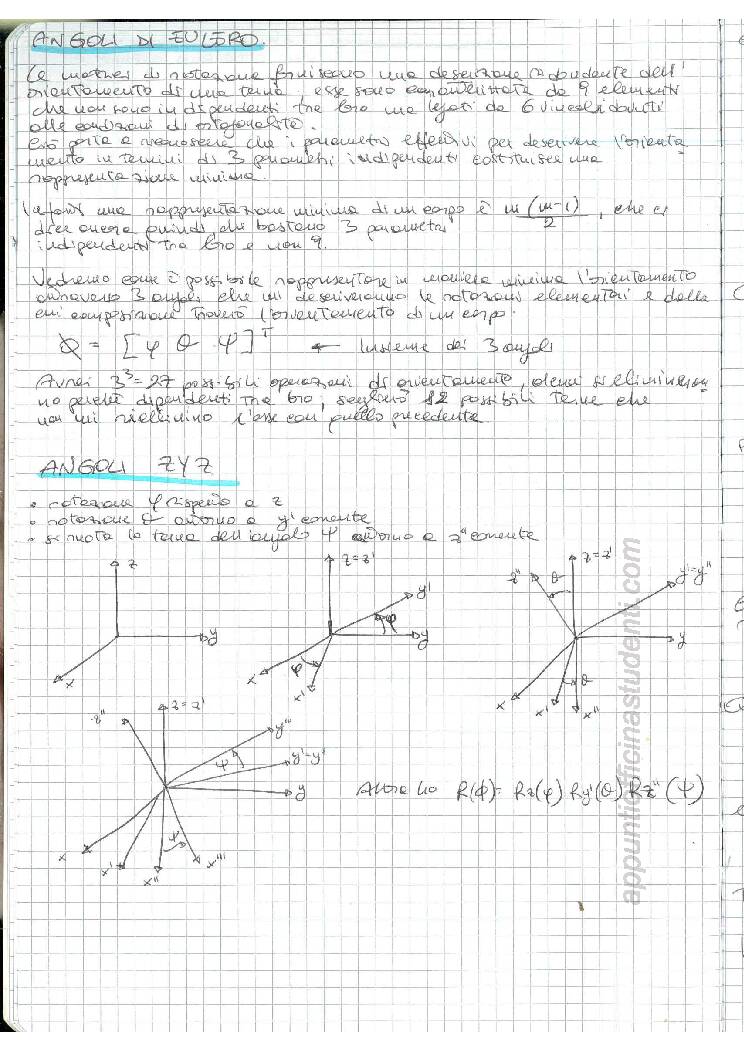 ANGOLI DI EULERO.
Le matrici di rotazione forniscono una descrizione ridondante dell'
orientamento di una terna, esse sono caratterizzate da 9 elementi
che non sono indipendenti tra loro ma legati da 6 vincoli dovuti
alle condizioni di ortogonalità.
Ciò porta a riconoscere che i parametri effettivi per descrivere l'orienta
mento in termini di 3 parametri indipendenti costituisce una
rappresentazione minima.
una rappresentazione minima di un corpo è m(m-1)/2, che ci
dice ancora quindi che bastano 3 parametri
indipendenti tra loro e non 9.
Vedremo come è possibile rappresentare in maniera minima l'orientamento
attraverso 3 angoli che mi descriveranno le rotazioni elementari e dalla
cui composizione troverò l'orientamento di un corpo.
φ = [φ θ ψ]^T ← Insieme dei 3 angoli
Avrei 3³=27 possibili operazioni di orientamento, alcuni si elimineran
no perché dipendenti tra loro, sceglierò 12 possibili terne che
non mi riallineino l'asse con quello precedente
ANGOLI ZYZ
• rotazione φ rispetto a z
• rotazione θ attorno a y' corrente
• si ruota la terna dell'angolo ψ attorno a z'' corrente
z
y
x
z=z'
y'
φ
y
φ
x
x'
z''
θ
z=z'
y'=y''
y
θ
x
x'
x''
z''
z=z'
y'''
ψ
y'=y''
y
x
x'
x''
ψ
x'''
Allora ho R(φ)= Rz(φ) Ry'(θ) Rz''(ψ)
appuntiofficinastudenti.com